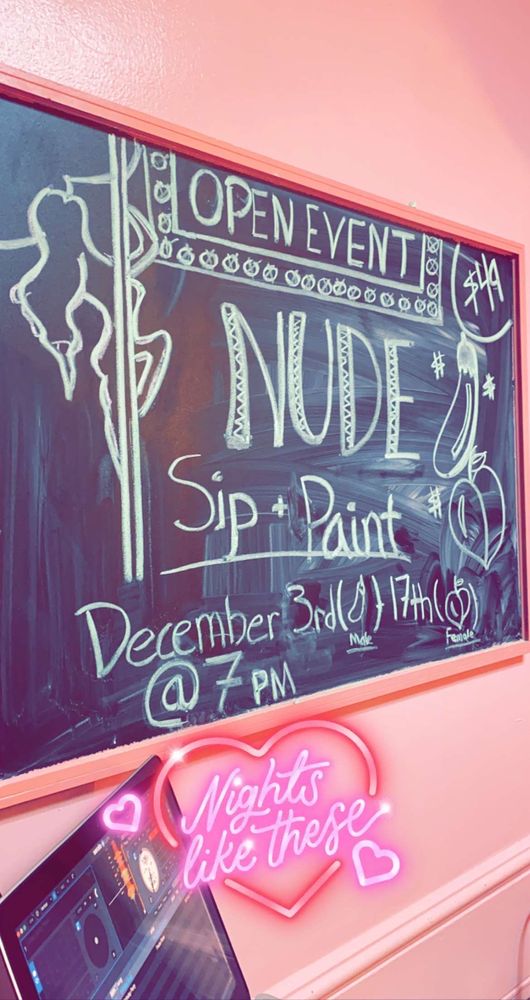 OPEN EVENT
$49
NUDE
Sip + Paint
December 3rd( ) + 17th( )
Male Female
@ 7 PM
Nights
like these